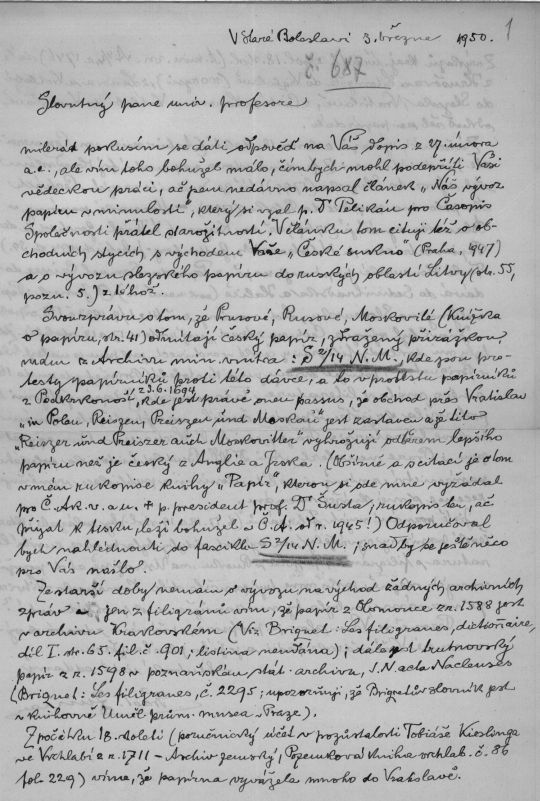 V Staré Boleslavi 3. března 1950.
1
č. 687
Slovutný pane univ. profesore
milerád pokusím se dáti odpověď na Váš dopis z 27. února
a.c., ale vím toho bohužel málo, čím bych mohl podepříti Vaši
vědeckou práci, ač jsem nedávno napsal článek „Náš vývoz
papíru v minulosti", který si vzal p. Dr Pelikán pro Časopis
Společnosti přátel starožitností. V článku tom cituji též o ob-
chodních stycích s východem Vaše „České sukno" (Praha, 1947)
a o vývozu slezského papíru do ruských oblastí Litvy (str. 55,
pozn. 5.) z téhož.
Svou zprávu o tom, že Prusové, Rusové, Moskovité (Knížka
o papíru, str. 41) odmítají český papír, zdražený přirážkou,
mám z Archivu min. vnitra: S 2/14 N.M., kde jsou pro-
testy papírníků proti této dávce, a to v protestu papírníků
z Podkrkonoší, z 23.6.1694 kde jest právě onen passus, že obchod přes Vratislav
„in Polen, Reiszen, Preiszen und Moskau" jest zastaven a že tito
„Reiszer und Preiszer auch Moskovitter" vyhrožují odběrem lepšího
papíru než je český z Anglie a Irska. (Obšírně a s citací je o tom
v mém rukopise knihy „Papír", kterou si ode mne vyžádal
pro Č. Ak. v. a u. + p. president prof. Dr Šusta; rukopis ten, ač
přijat k tisku, leží bohužel v Č.A. od r. 1945!) Odporučoval
bych nahlédnouti do fasciklu S 2/14 N.M.; snad by se ještě něco
pro Vás našlo.
Ze starší doby nemám o vývozu na východ žádných archivních
zpráv a jen z filigránů vím, že papír z Olomouce z r. 1588 jest
v archivu Krakovském (Viz Briquet: Les filigranes, dictionaire,
díl I. str. 65. fil. č. 901; listina neudána); dále jest trutnovský
papír z r. 1598 v poznaňském stát. archivu, I.N. acta Naclenses
(Briquet: Les filigranes, č. 2295; upozorňuji, že Briquetův slovník jest
v knihovně Uměl. prům. musea v Praze).
Z počátku 18. století (poručnický účet v pozůstalosti Tobiáše Kieslinga
ve Vrchlabí z r. 1711 – Archiv zemský, Pozemková kniha vrchlab. č. 86
fol. 229) víme, že papírna vyvážela mnoho do Vratislavě.